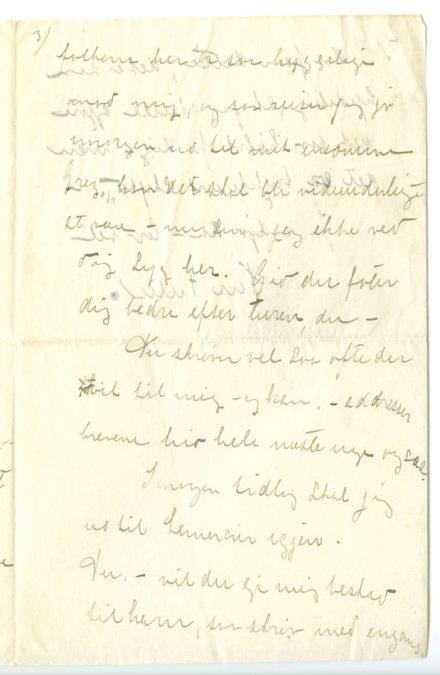 3)
folkene her er saa hyggelige
mod mig, og saa reiser jeg jo
imorgen ud til mit ensomme
Grez, hvor det skal bli vidunderligt
at være – men
dig syg her. Gid du føler
dig bedre efter turen, du –
Du skriver vel saa ofte du
vil til mig – og kan. – addresser
brevene hid hele næste uge og saa.
Imorgen tidlig skal jeg
ud til Lemercier igjen.
Du. – vil du gi mig besked
til ham, saa skriv med engang.